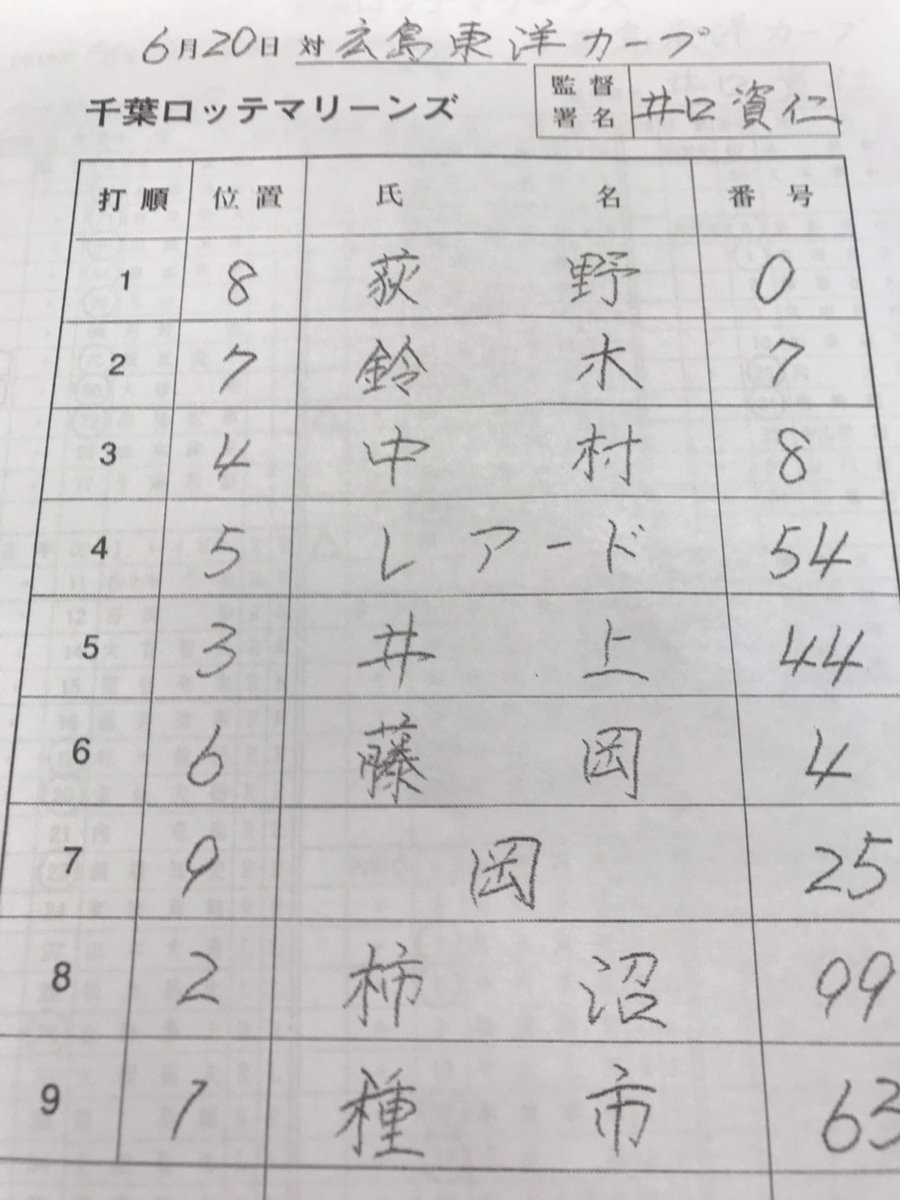 6月20日 対 広島東洋カープ
千葉ロッテマリーンズ 監督署名 井口資仁
打順 位置 氏名 番号
1 8 荻野 0
2 7 鈴木 7
3 4 中村 8
4 5 レアード 54
5 3 井上 44
6 6 藤岡 4
7 9 岡 25
8 2 柿沼 99
9 1 種市 63